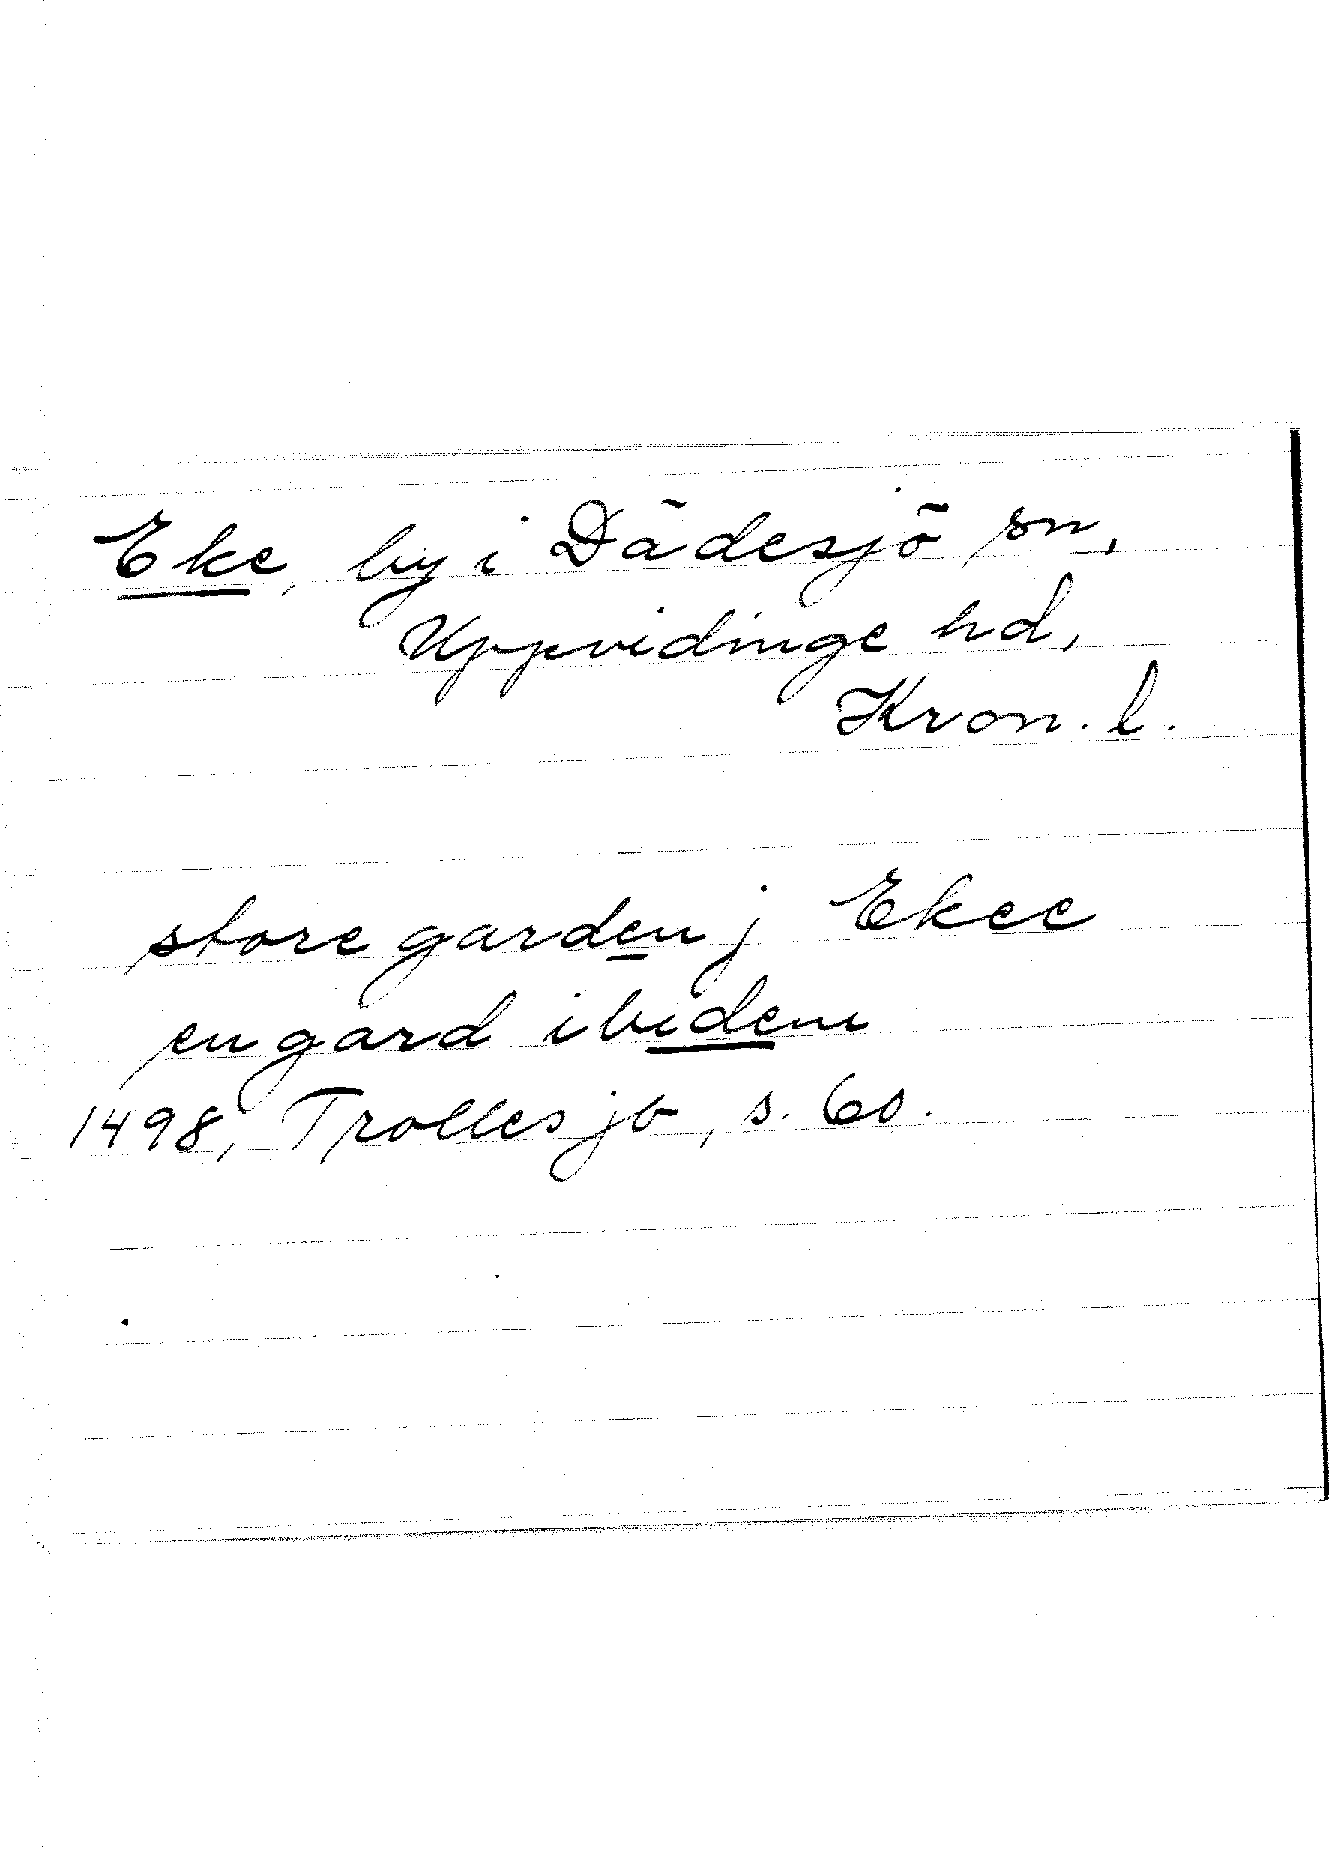 Eke, by i Dädesjö sn,
Uppvidinge hd,
Kron. l.
store garden j Ekee
en gard ibidem
1498, Trolles jb, s. 60.